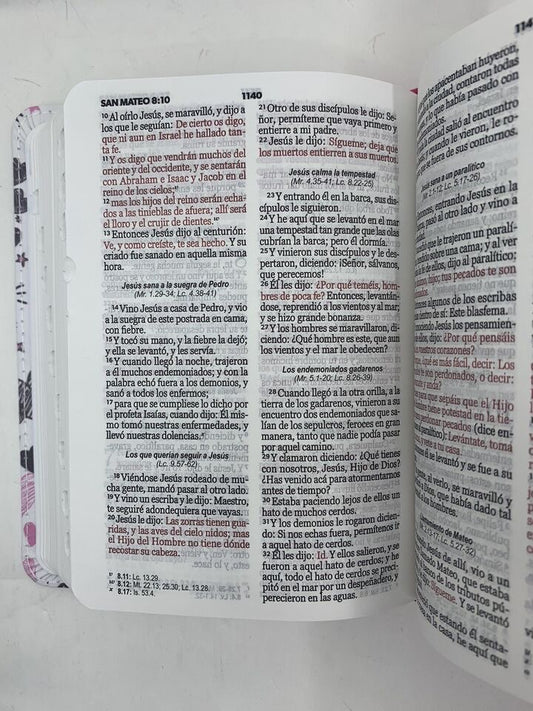 SAN MATEO 8:10
1140
10 Al oírlo Jesús, se maravilló, y dijo a
los que le seguían: De cierto os digo,
que ni aun en Israel he hallado tan-
ta fe.
11 Y os digo que vendrán muchos del
oriente y del occidente, y se sentarán
con Abraham e Isaac y Jacob en el
reino de los cielos;
12 mas los hijos del reino serán echa-
dos a las tinieblas de afuera; allí será
el lloro y el crujir de dientes.
13 Entonces Jesús dijo al centurión:
Ve, y como creíste, te sea hecho. Y su
criado fue sanado en aquella misma
hora.
Jesús sana a la suegra de Pedro
(Mr. 1.29-34; Lc. 4.38-41)
14 Vino Jesús a casa de Pedro, y vio
a la suegra de este postrada en cama,
con fiebre.
15 Y tocó su mano, y la fiebre la dejó;
y ella se levantó, y les servía.
16 Y cuando llegó la noche, trajeron
a él muchos endemoniados; y con la
palabra echó fuera a los demonios, y
sanó a todos los enfermos;
17 para que se cumpliese lo dicho por
el profeta Isaías, cuando dijo: Él mis-
mo tomó nuestras enfermedades, y
llevó nuestras dolencias.
Los que querían seguir a Jesús
(Lc. 9.57-62)
18 Viéndose Jesús rodeado de mu-
cha gente, mandó pasar al otro lado.
19 Y vino un escriba y le dijo: Maestro,
te seguiré adondequiera que vayas.
20 Jesús le dijo: Las zorras tienen gua-
ridas, y las aves del cielo nidos; mas
el Hijo del Hombre no tiene dónde
recostar su cabeza.
8.11: Lc. 13.29.
8.12: Mt. 22.13; 25.30; Lc. 13.28.
8.17: Is. 53.4.
21 Otro de sus discípulos le dijo: Se-
ñor, permíteme que vaya primero y
entierre a mi padre.
22 Jesús le dijo: Sígueme; deja que
los muertos entierren a sus muertos.
Jesús calma la tempestad
(Mr. 4.35-41; Lc. 8.22-25)
23 Y entrando él en la barca, sus dis-
cípulos le siguieron.
24 Y he aquí que se levantó en el mar
una tempestad tan grande que las olas
cubrían la barca; pero él dormía.
25 Y vinieron sus discípulos y le des-
pertaron, diciendo: ¡Señor, sálvanos,
que perecemos!
26 Él les dijo: ¿Por qué teméis, hom-
bres de poca fe? Entonces, levantán-
dose, reprendió a los vientos y al mar;
y se hizo grande bonanza.
27 Y los hombres se maravillaron, di-
ciendo: ¿Qué hombre es este, que aun
los vientos y el mar le obedecen?
Los endemoniados gadarenos
(Mr. 5.1-20; Lc. 8.26-39)
28 Cuando llegó a la otra orilla, a la
tierra de los gadarenos, vinieron a su
encuentro dos endemoniados que sa-
lían de los sepulcros, feroces en gran
manera, tanto que nadie podía pasar
por aquel camino.
29 Y clamaron diciendo: ¿Qué tienes
con nosotros, Jesús, Hijo de Dios?
¿Has venido acá para atormentarnos
antes de tiempo?
30 Estaba paciendo lejos de ellos un
hato de muchos cerdos.
31 Y los demonios le rogaron diciendo:
Si nos echas fuera, permítenos ir
a aquel hato de cerdos.
32 Él les dijo: Id. Y ellos salieron, y se
fueron a aquel hato de cerdos; y he
aquí, todo el hato de cerdos se preci-
pitó en el mar por un despeñadero, y
perecieron en las aguas.
114
apacentaban huyeron,
la ciudad, contaron todas
que había pasado con
ciudad salió al encuentro
cuando le vieron, le ro-
fuera de sus contornos.
Jesús sana a un paralítico
2.1-12; Lc. 5.17-26)
entonces, entrando Jesús en la
pasó al otro lado y vino a
que le trajeron un paralí-
sobre una cama; y al ver
de ellos, dijo al paralítico;
hijo; tus pecados te son
algunos de los escribas
dentro de sí: Este blasfema.
Jesús los pensamien-
dijo: ¿Por qué pensáis
vuestros corazones?
es más fácil, decir: Los
son perdonados, o decir:
anda?
que sepáis que el Hijo
tiene potestad en la tie-
pecados (dice en-
Levántate, toma
vete a tu casa.
él se levantó y se fue a su
al verlo, se maravilló y
que había dado tal
los hombres.
de Mateo
Lc. 5.27-32)
Jesús de allí, vio a un
Mateo, que estaba
de los tributos pú-
Sígueme. Y se levantó
que estando él senta-
en la casa, he aquí que